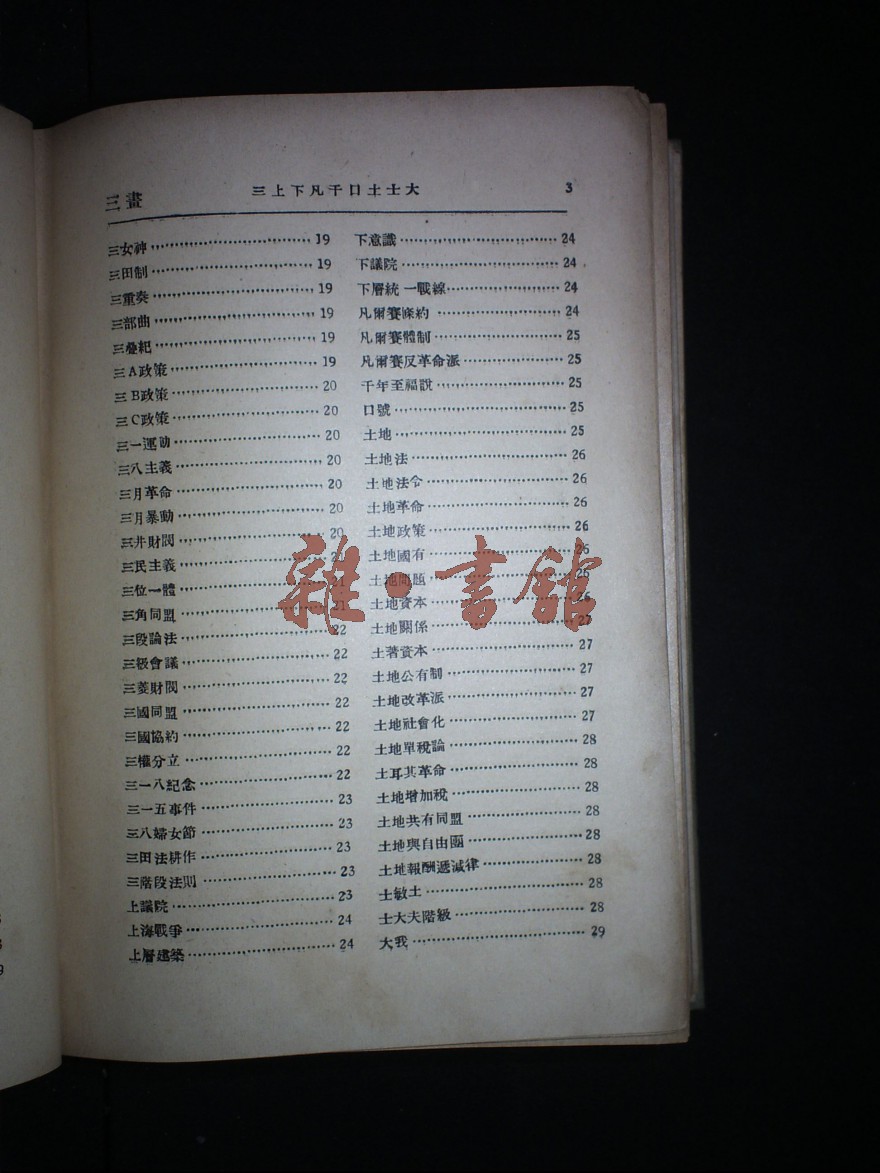 三畫 三上下凡千口土士大 3
三女神 19
三田制 19
三重奏 19
三部曲 19
三疊紀 19
三A政策 19
三B政策 20
三C政策 20
三一運動 20
三八主義 20
三月革命 20
三月暴動 20
三井財閥 20
三民主義 21
三位一體 21
三角同盟 21
三段論法 22
三級會議 22
三菱財閥 22
三國同盟 22
三國協約 22
三權分立 22
三一八紀念 22
三一五事件 23
三八婦女節 23
三田法耕作 23
三階段法則 23
上議院 23
上海戰爭 24
上層建築 24
下意識 24
下議院 24
下層統一戰線 24
凡爾賽條約 24
凡爾賽體制 25
凡爾賽反革命派 25
千年至福說 25
口號 25
土地 25
土地法 26
土地法令 26
土地革命 26
土地政策 26
土地國有 26
土地問題 26
土地資本 26
土地關係 27
土著資本 27
土地公有制 27
土地改革派 27
土地社會化 27
土地單稅論 28
土耳其革命 28
土地增加稅 28
土地共有同盟 28
土地與自由團 28
土地報酬遞減律 28
士敏土 28
士大夫階級 28
大我 29
雜·書館